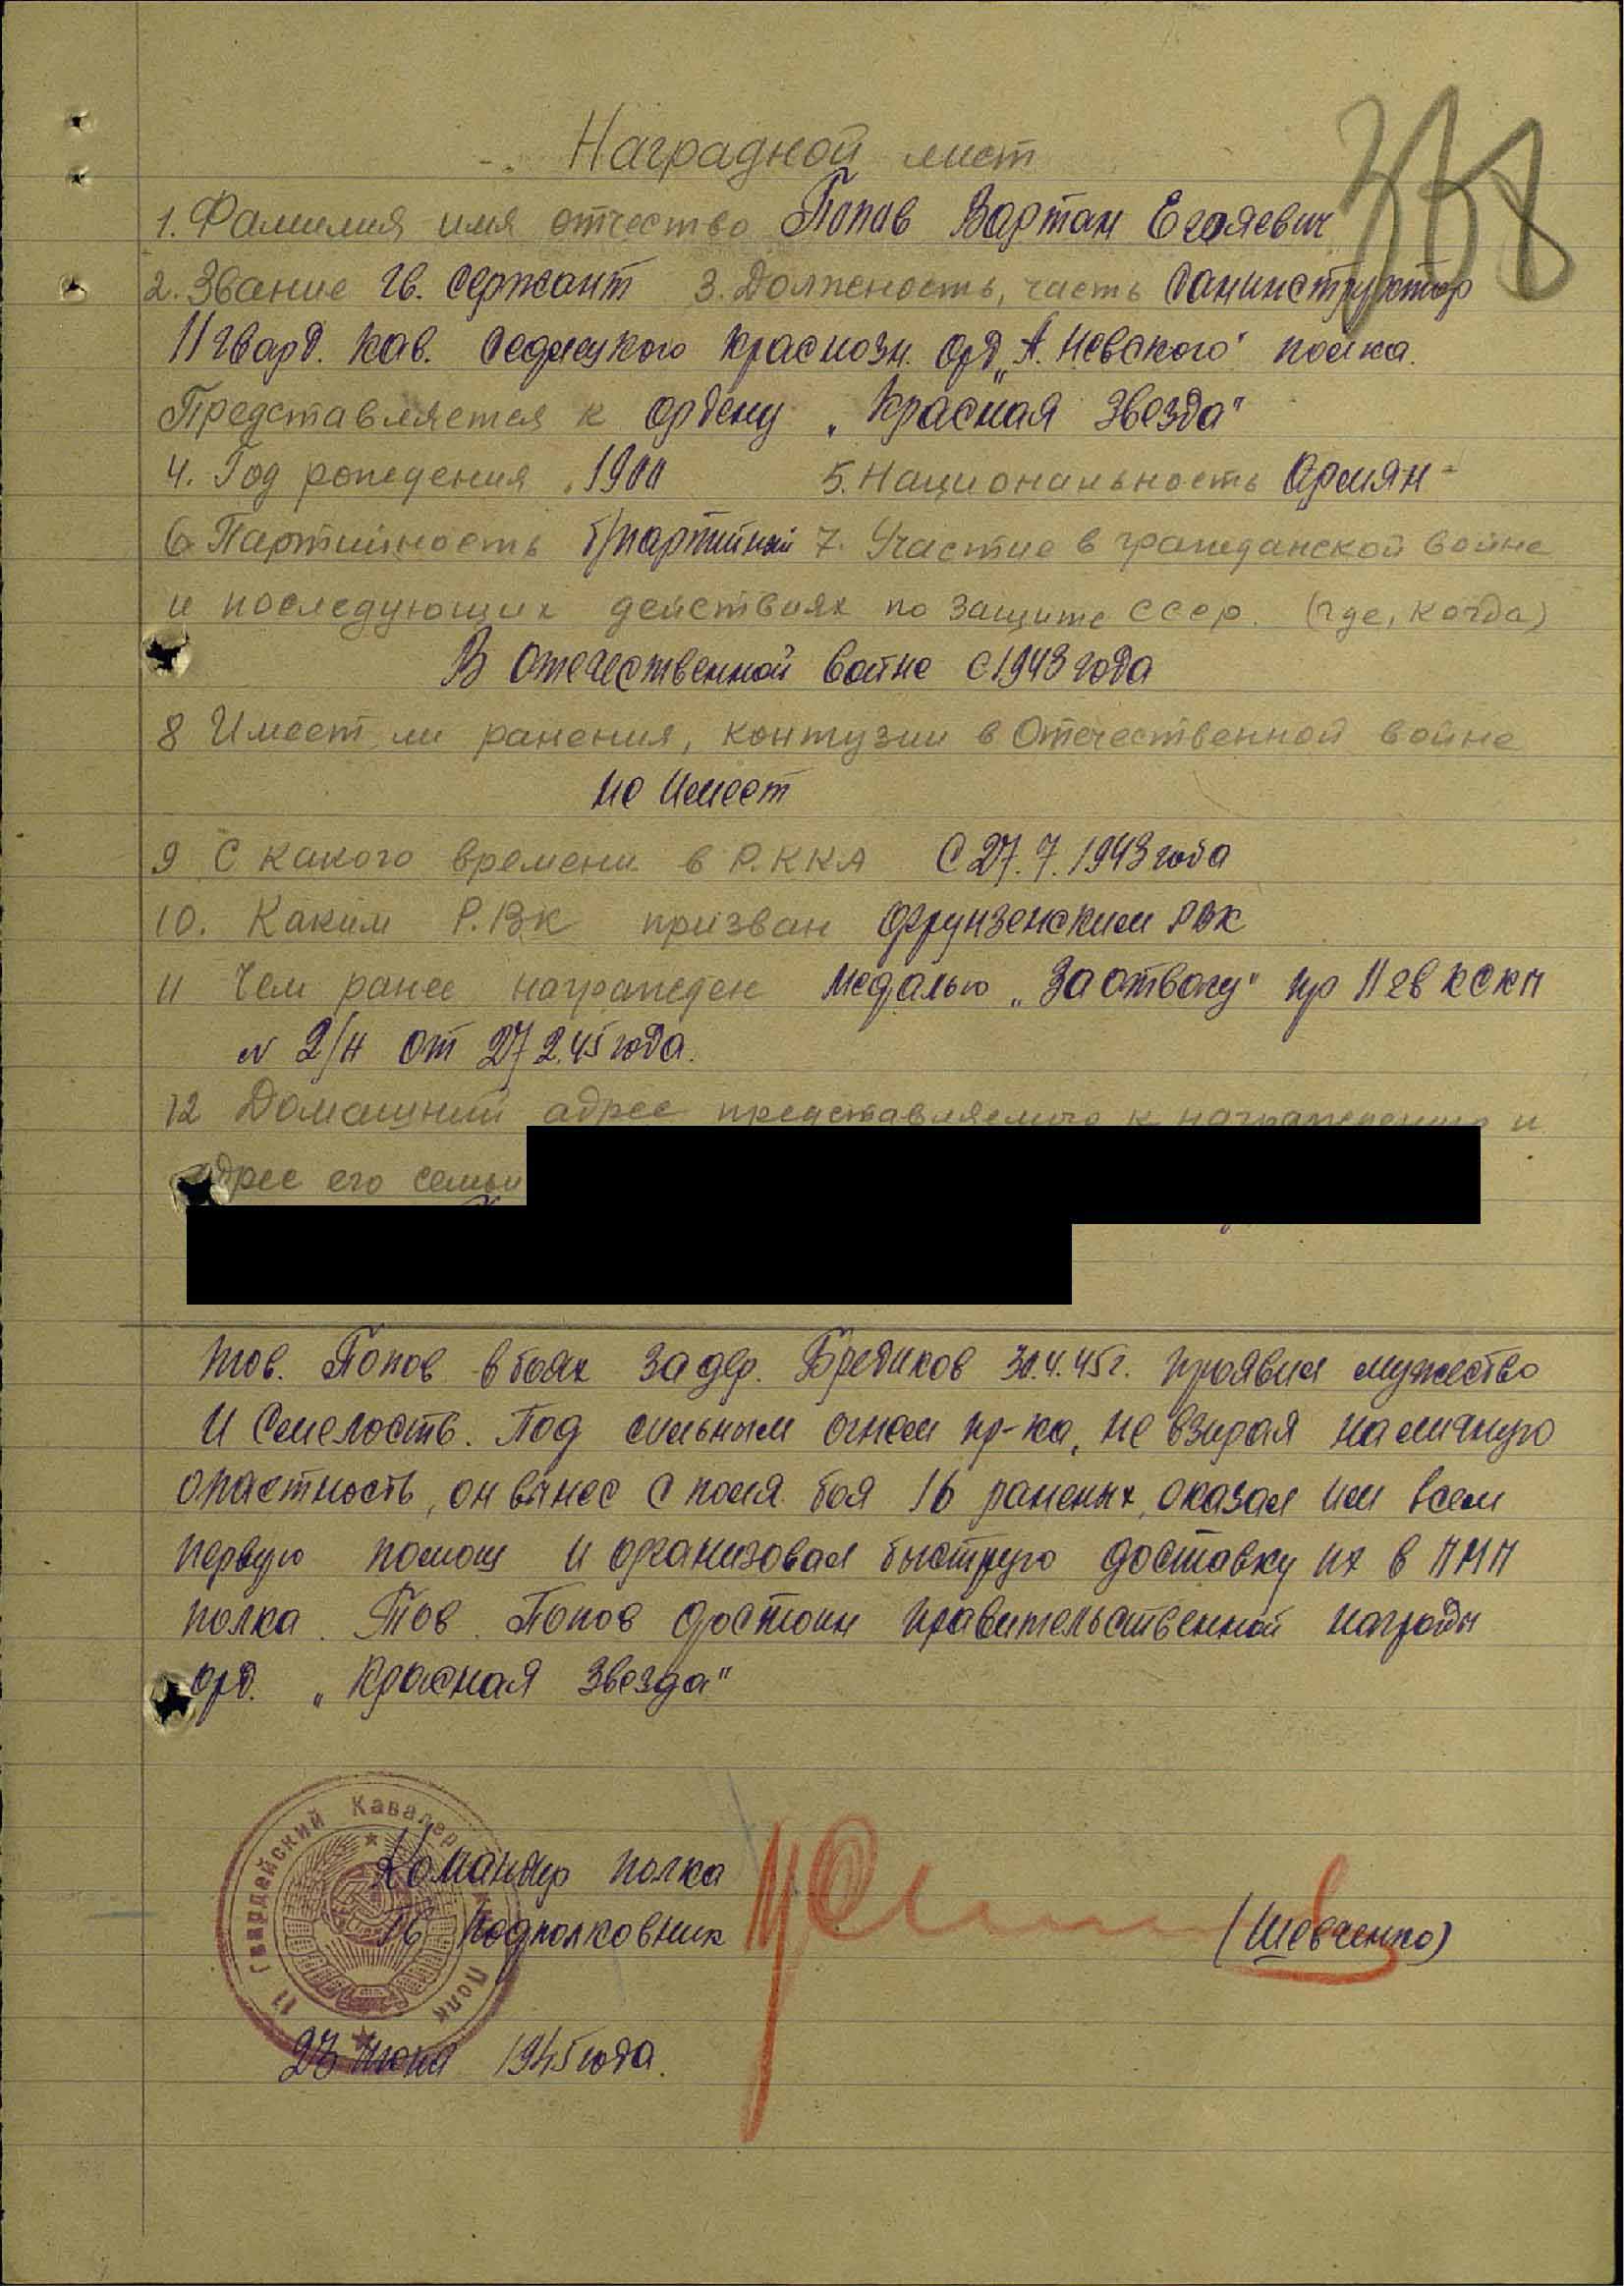 Наградной лист
338
1. Фамилия имя отчество Попов Вартан Егояевич
2. Звание гв. сержант 3. Должность, часть санинструктор
11 гвард. кав. Седлецкого краснозн. орд. „А. Невского" полка.
Представляется к ордену „Красная звезда"
4. Год рождения 1900 5. Национальность Армян-
6. Партийность б/партийный 7. Участие в гражданской войне
и последующих действиях по защите СССР. (где, когда)
В отечественной войне с 1943 года
8 Имеет ли ранения, контузии в Отечественной войне
не имеет
9 С какого времени в Р.ККА С 27.7.1943 года
10. Каким Р.ВК призван Фрунзенским РВК
11 Чем ранее награжден медалью „За отвагу" пр 11 гв КСКП
№ 2/н от 27 2.45 года.
12 Домашний адрес представляемого к награждению и
адрес его семьи
тов. Попов в боях за дер. Бредиков 30.4.45г. проявил мужество
и смелость. Под сильным огнем пр-ка, не взирая на личную
опастность, он вынес с поля боя 16 раненых, оказал им всем
первую помощ и организовал быструю доставку их в ПМП
полка. Тов. Попов достоин правительственной награды
орд. „Красная звезда"
11 Гвардейский Кавалер Полк
Командир полка
Гв подполковник (Шевченко)
23 июня 1945 года.